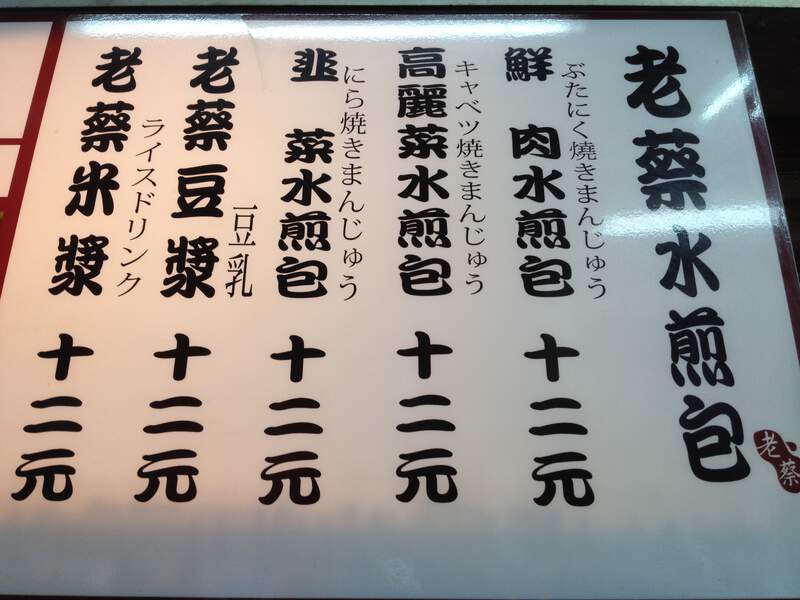 老蔡水煎包
老蔡
ぶたにく燒きまんじゅう
鮮肉水煎包 十二元
キャベツ焼きまんじゅう
高麗菜水煎包 十二元
にら焼きまんじゅう
韭菜水煎包 十二元
豆乳
老蔡豆漿 十二元
ライスドリンク
老蔡米漿 十二元